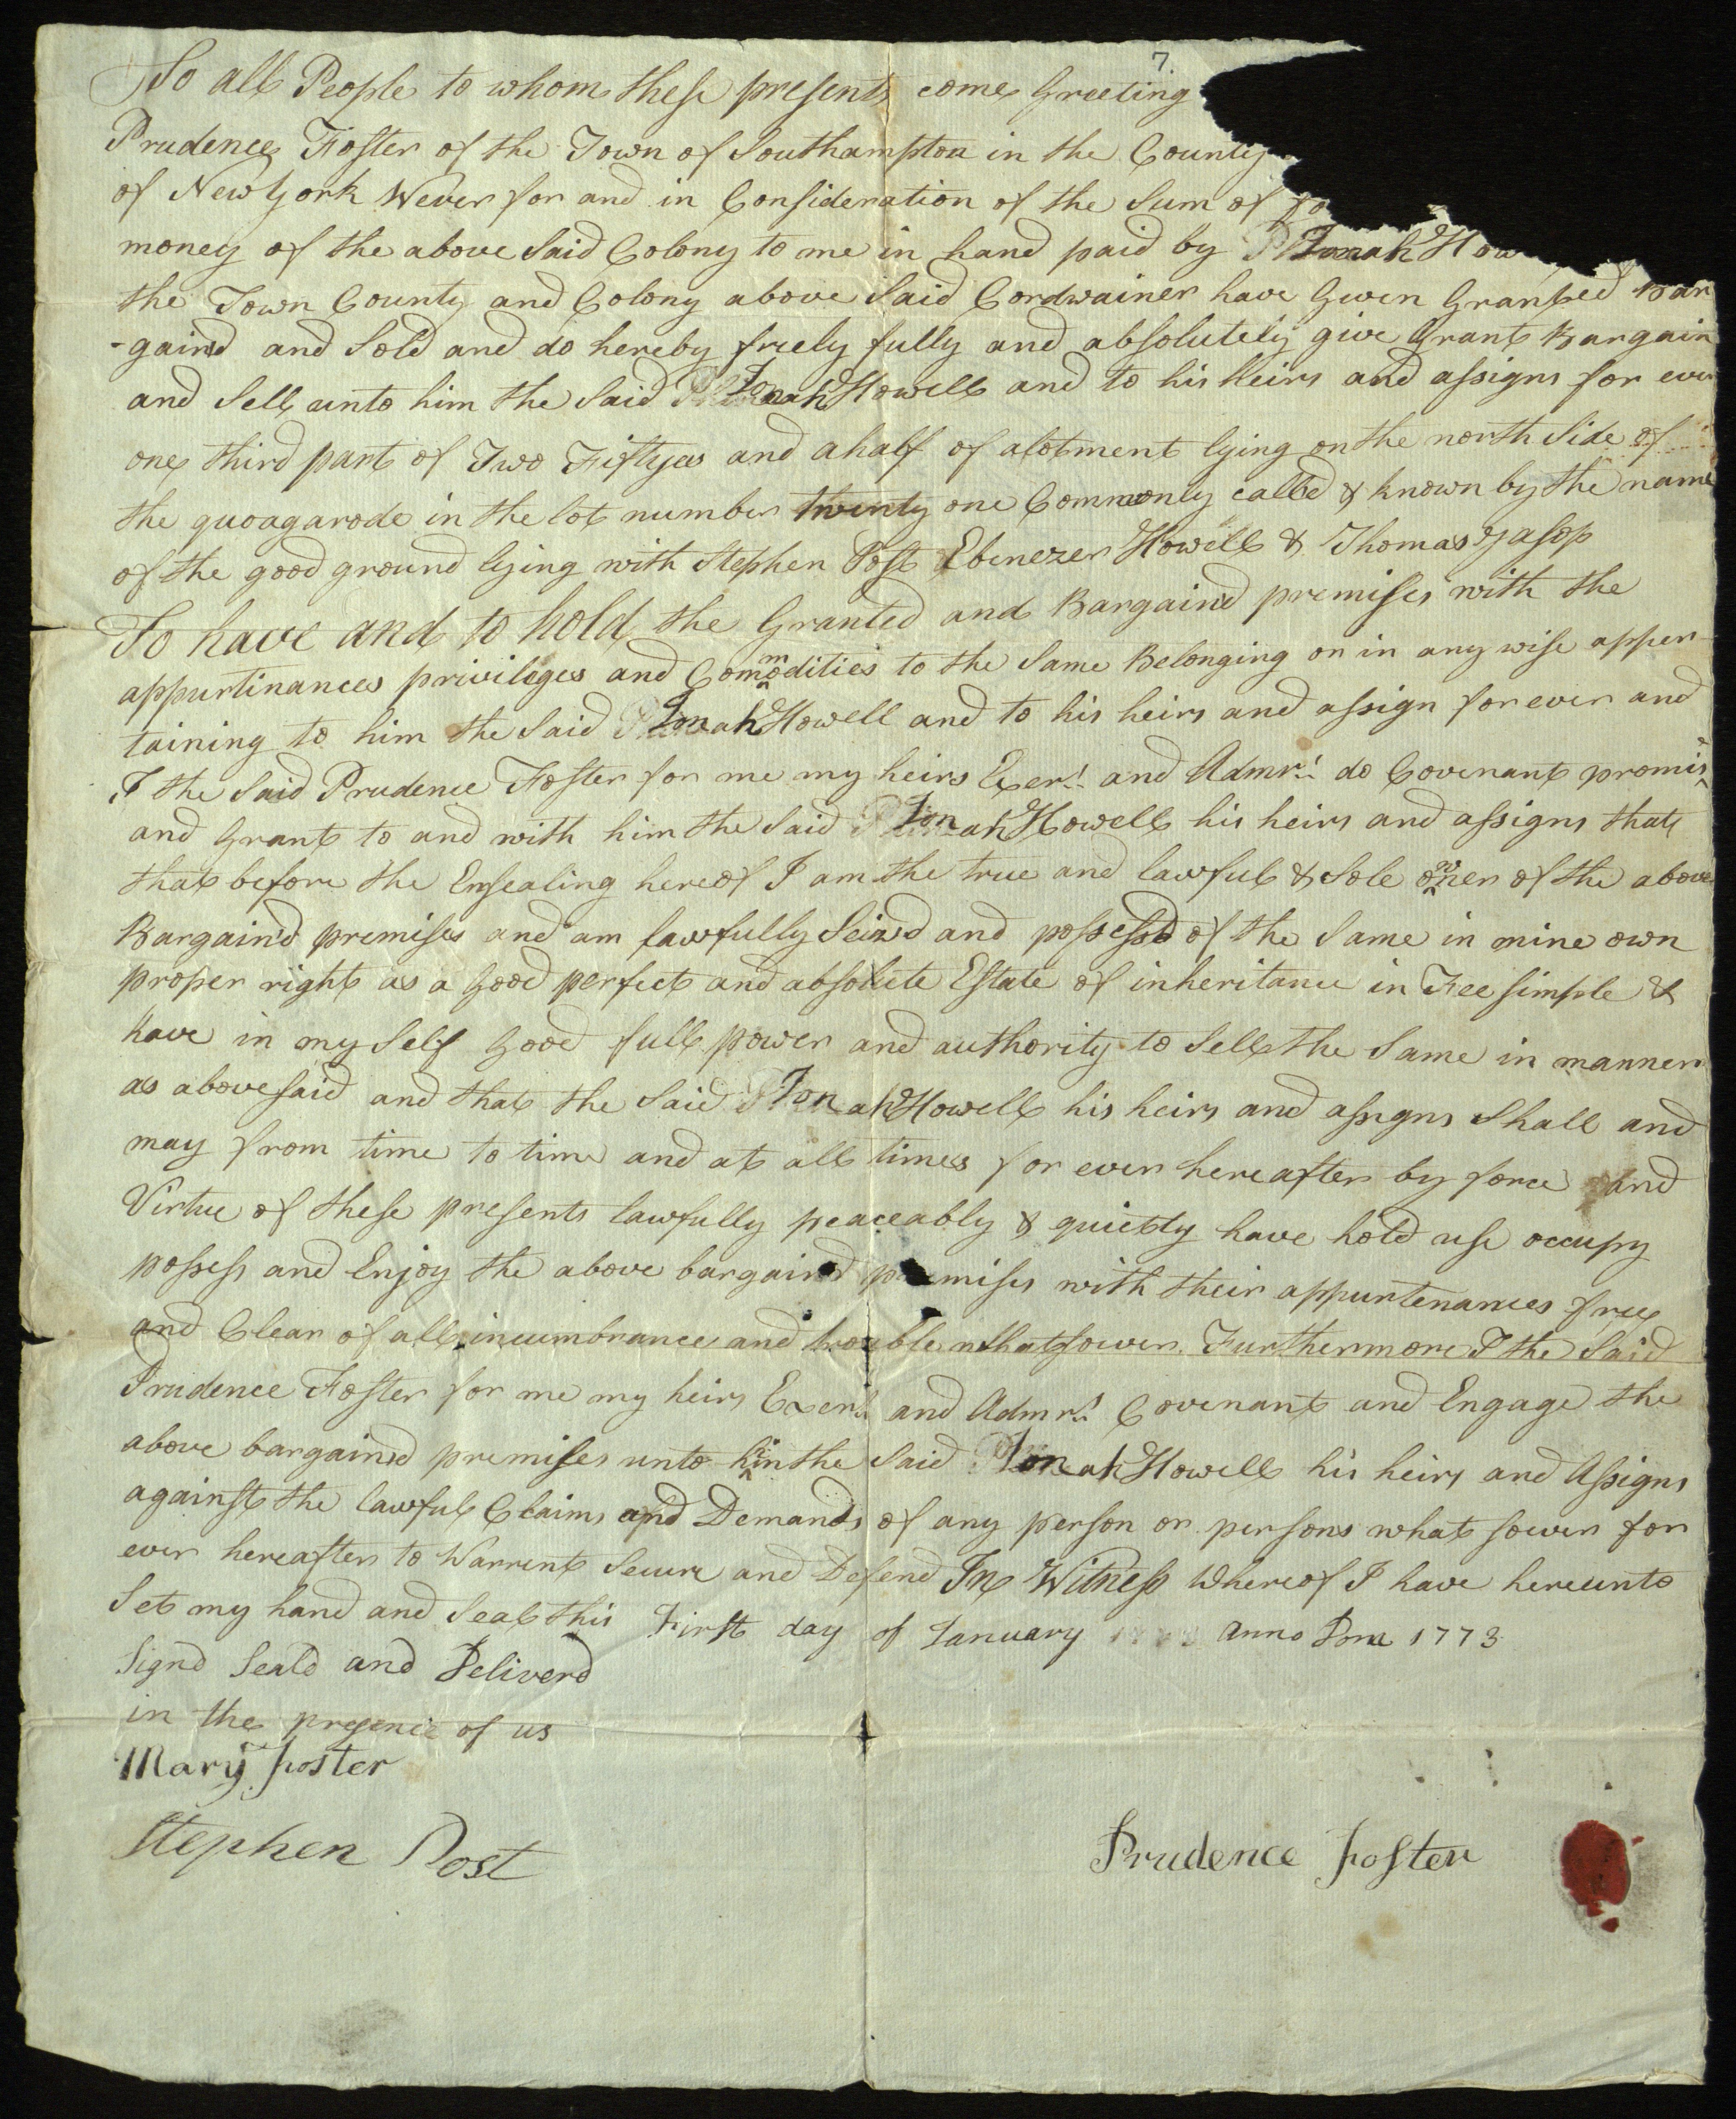 7
To all People to whom these presents come Greeting
Prudence Foster of the Town of Southampton in the County
of New York Wever for and in Consideration of the Sum of
money of the above Said Colony to me in hand paid by Jonah How
the Town County and Colony above Said Cordwainer have Given Granted Bar
-gaind and Sold and do hereby freely fully and absolutely give Grant Bargain
and Sell unto him the Said Jonah Howell and to his heirs and assigns for ever
one third part of Two Fiftyes and a half of alotment lying on the north Side of
the quoagarode in the lot number twenty one Commonly called & known by the name
of the good ground lying with Stephen Post Ebenezer Howell & Thomas Jasop
To have and to hold the Granted and Bargaind premises with the
appurtinances privileges and Commodities to the Same Belonging or in any wise apper-
taining to him the Said Jonah Howell and to his heirs and assign for ever and
I the Said Prudence Foster for me my heirs Exers. and Admrs. do Covenant promise
and Grant to and with him the Said Jonah Howell his heirs and assigns that
that before the Ensealing hereof I am the true and lawful & Sole owner of the above
Bargaind premises and am lawfully Seizd and possessd of the Same in mine own
proper right as a Good perfect and absolute Estate of inheritance in Fee simple &
have in my Self Good full power and authority to Sell the Same in manner
as abovesaid and that the Said Jonah Howell his heirs and assigns Shall and
may from time to time and at all times for ever hereafter by force and
Virtue of these presents lawfully peaceably & quietly have hold use occupy
possess and Enjoy the above bargaind premises with their appurtenances free
and Clear of all incumbrance and trouble whatsower. Furthermore I the Said
Prudence Foster for me my heirs Exers. and Admrs. Covenant and Engage the
above bargaind premises unto him the Said Jonah Howell his heirs and Assigns
against the lawful Claims and Demands of any person or persons what sower for
ever hereafter to Warrent Secure and Defend In Witness Whereof I have hereunto
Set my hand and Seal this First day of January anno Dom 1773
Signd Seald and Deliverd
in the presence of us
Mary Foster
Stephen Post
Prudence Foster